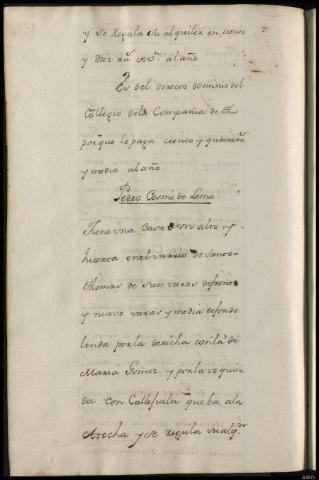 y se Regula su alquiler en ciento
y diez rs de Vn. al año
Es del directo dominio del
Collegio dela Compañia de Jhs
porque le paga ciento y quarenta
y medio al año
Pedro Cosme de Loma
Tiene una Casa con alto y
huerta en el varrio de Santo
thomas de siete varas de frente
y nueve varas y media defondo
linda por la derecha con la de
Maria Gomez y por la izquier
da con Callejuela que ba ala
Atocha y se Regula su alqr